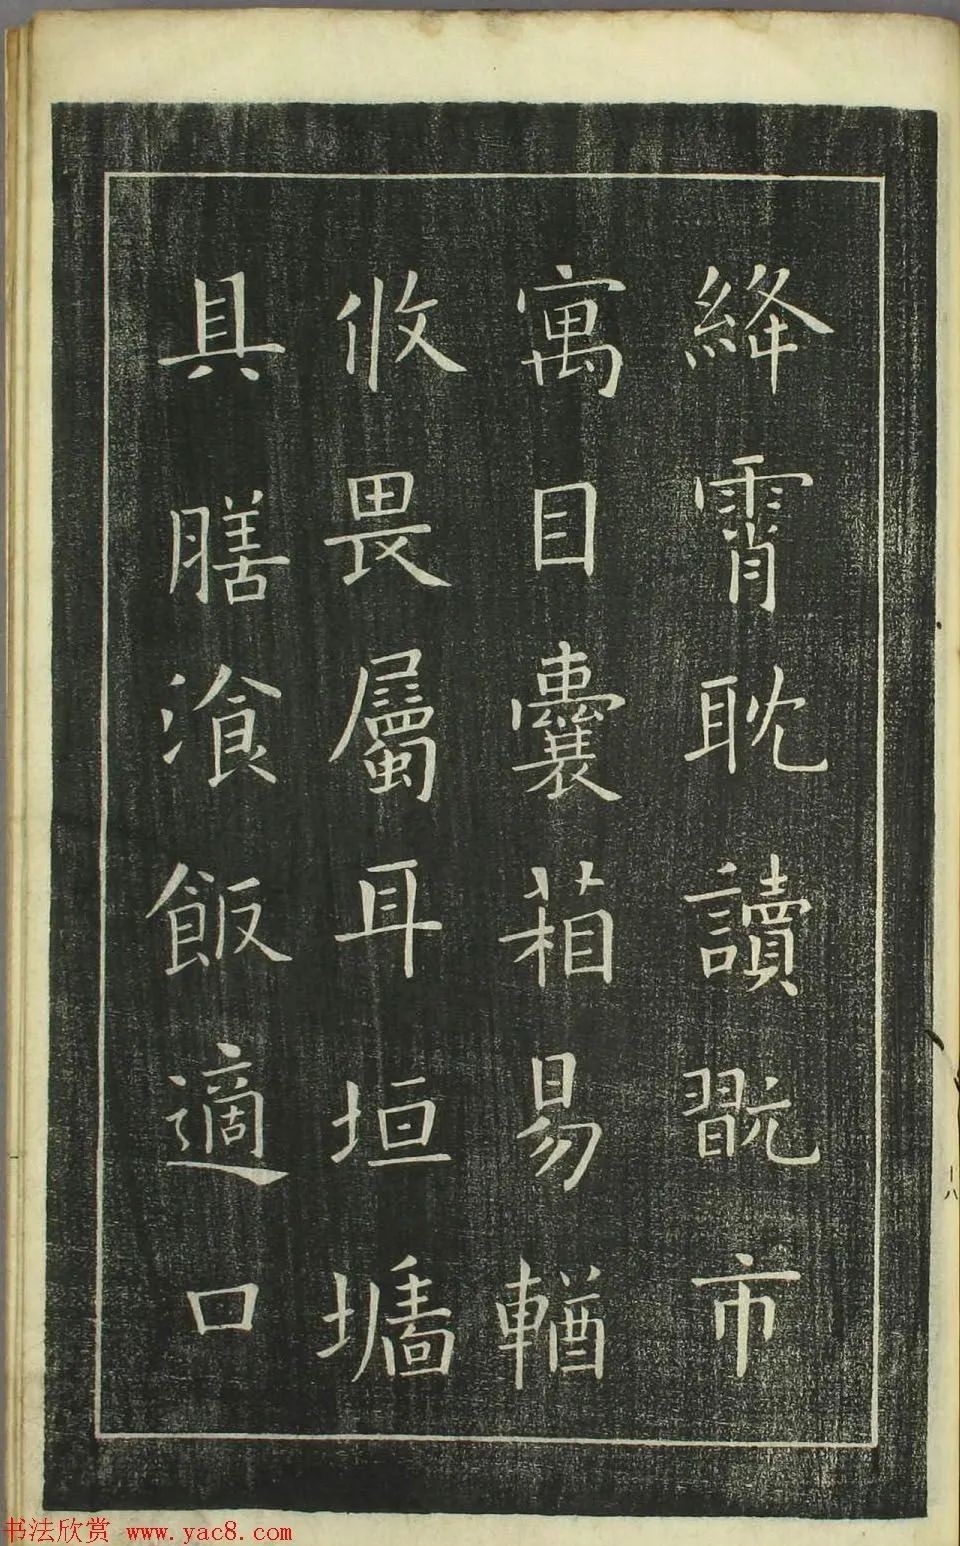 絳霄耽讀翫市
寓目囊葙易輶
攸畏屬耳垣墻
具膳飡飯適口
书法欣赏 www.yac8.com